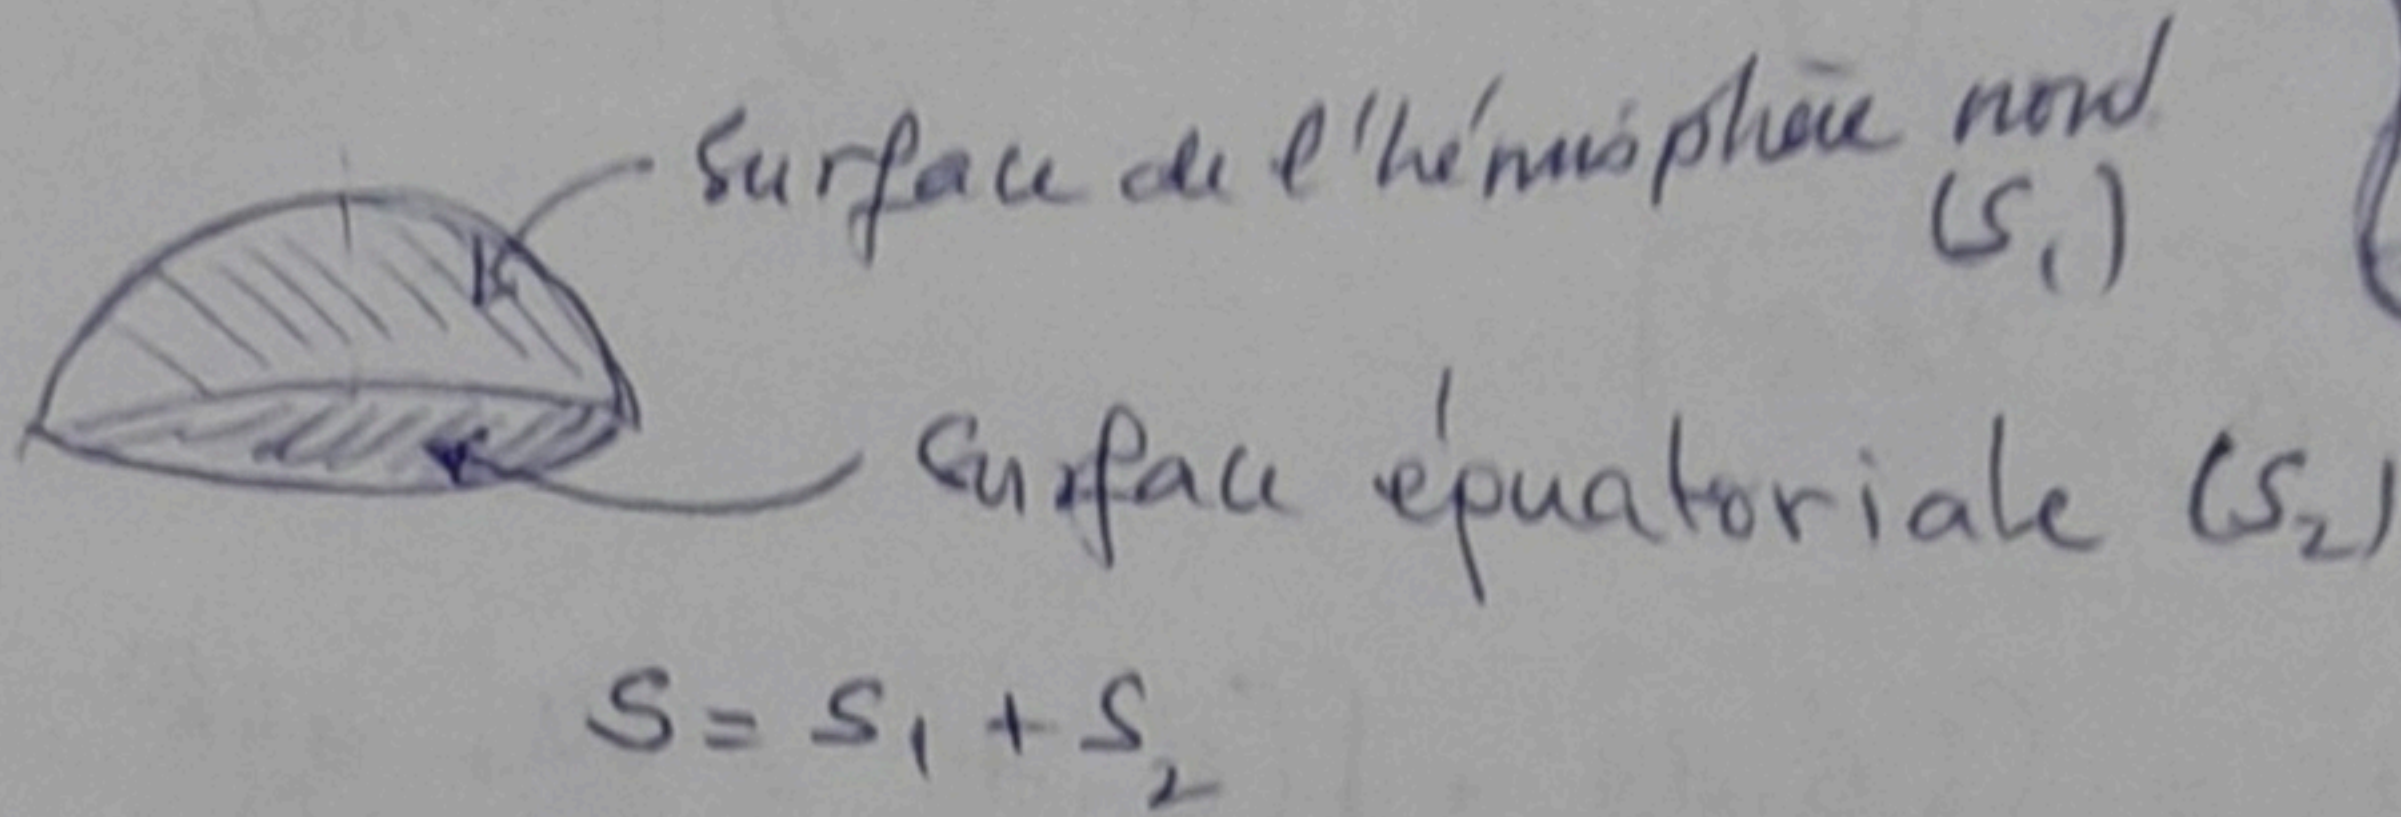 Surface de l'hémisphère nord
(S₁)
Surface équatoriale (S₂)
S = S₁ + S₂